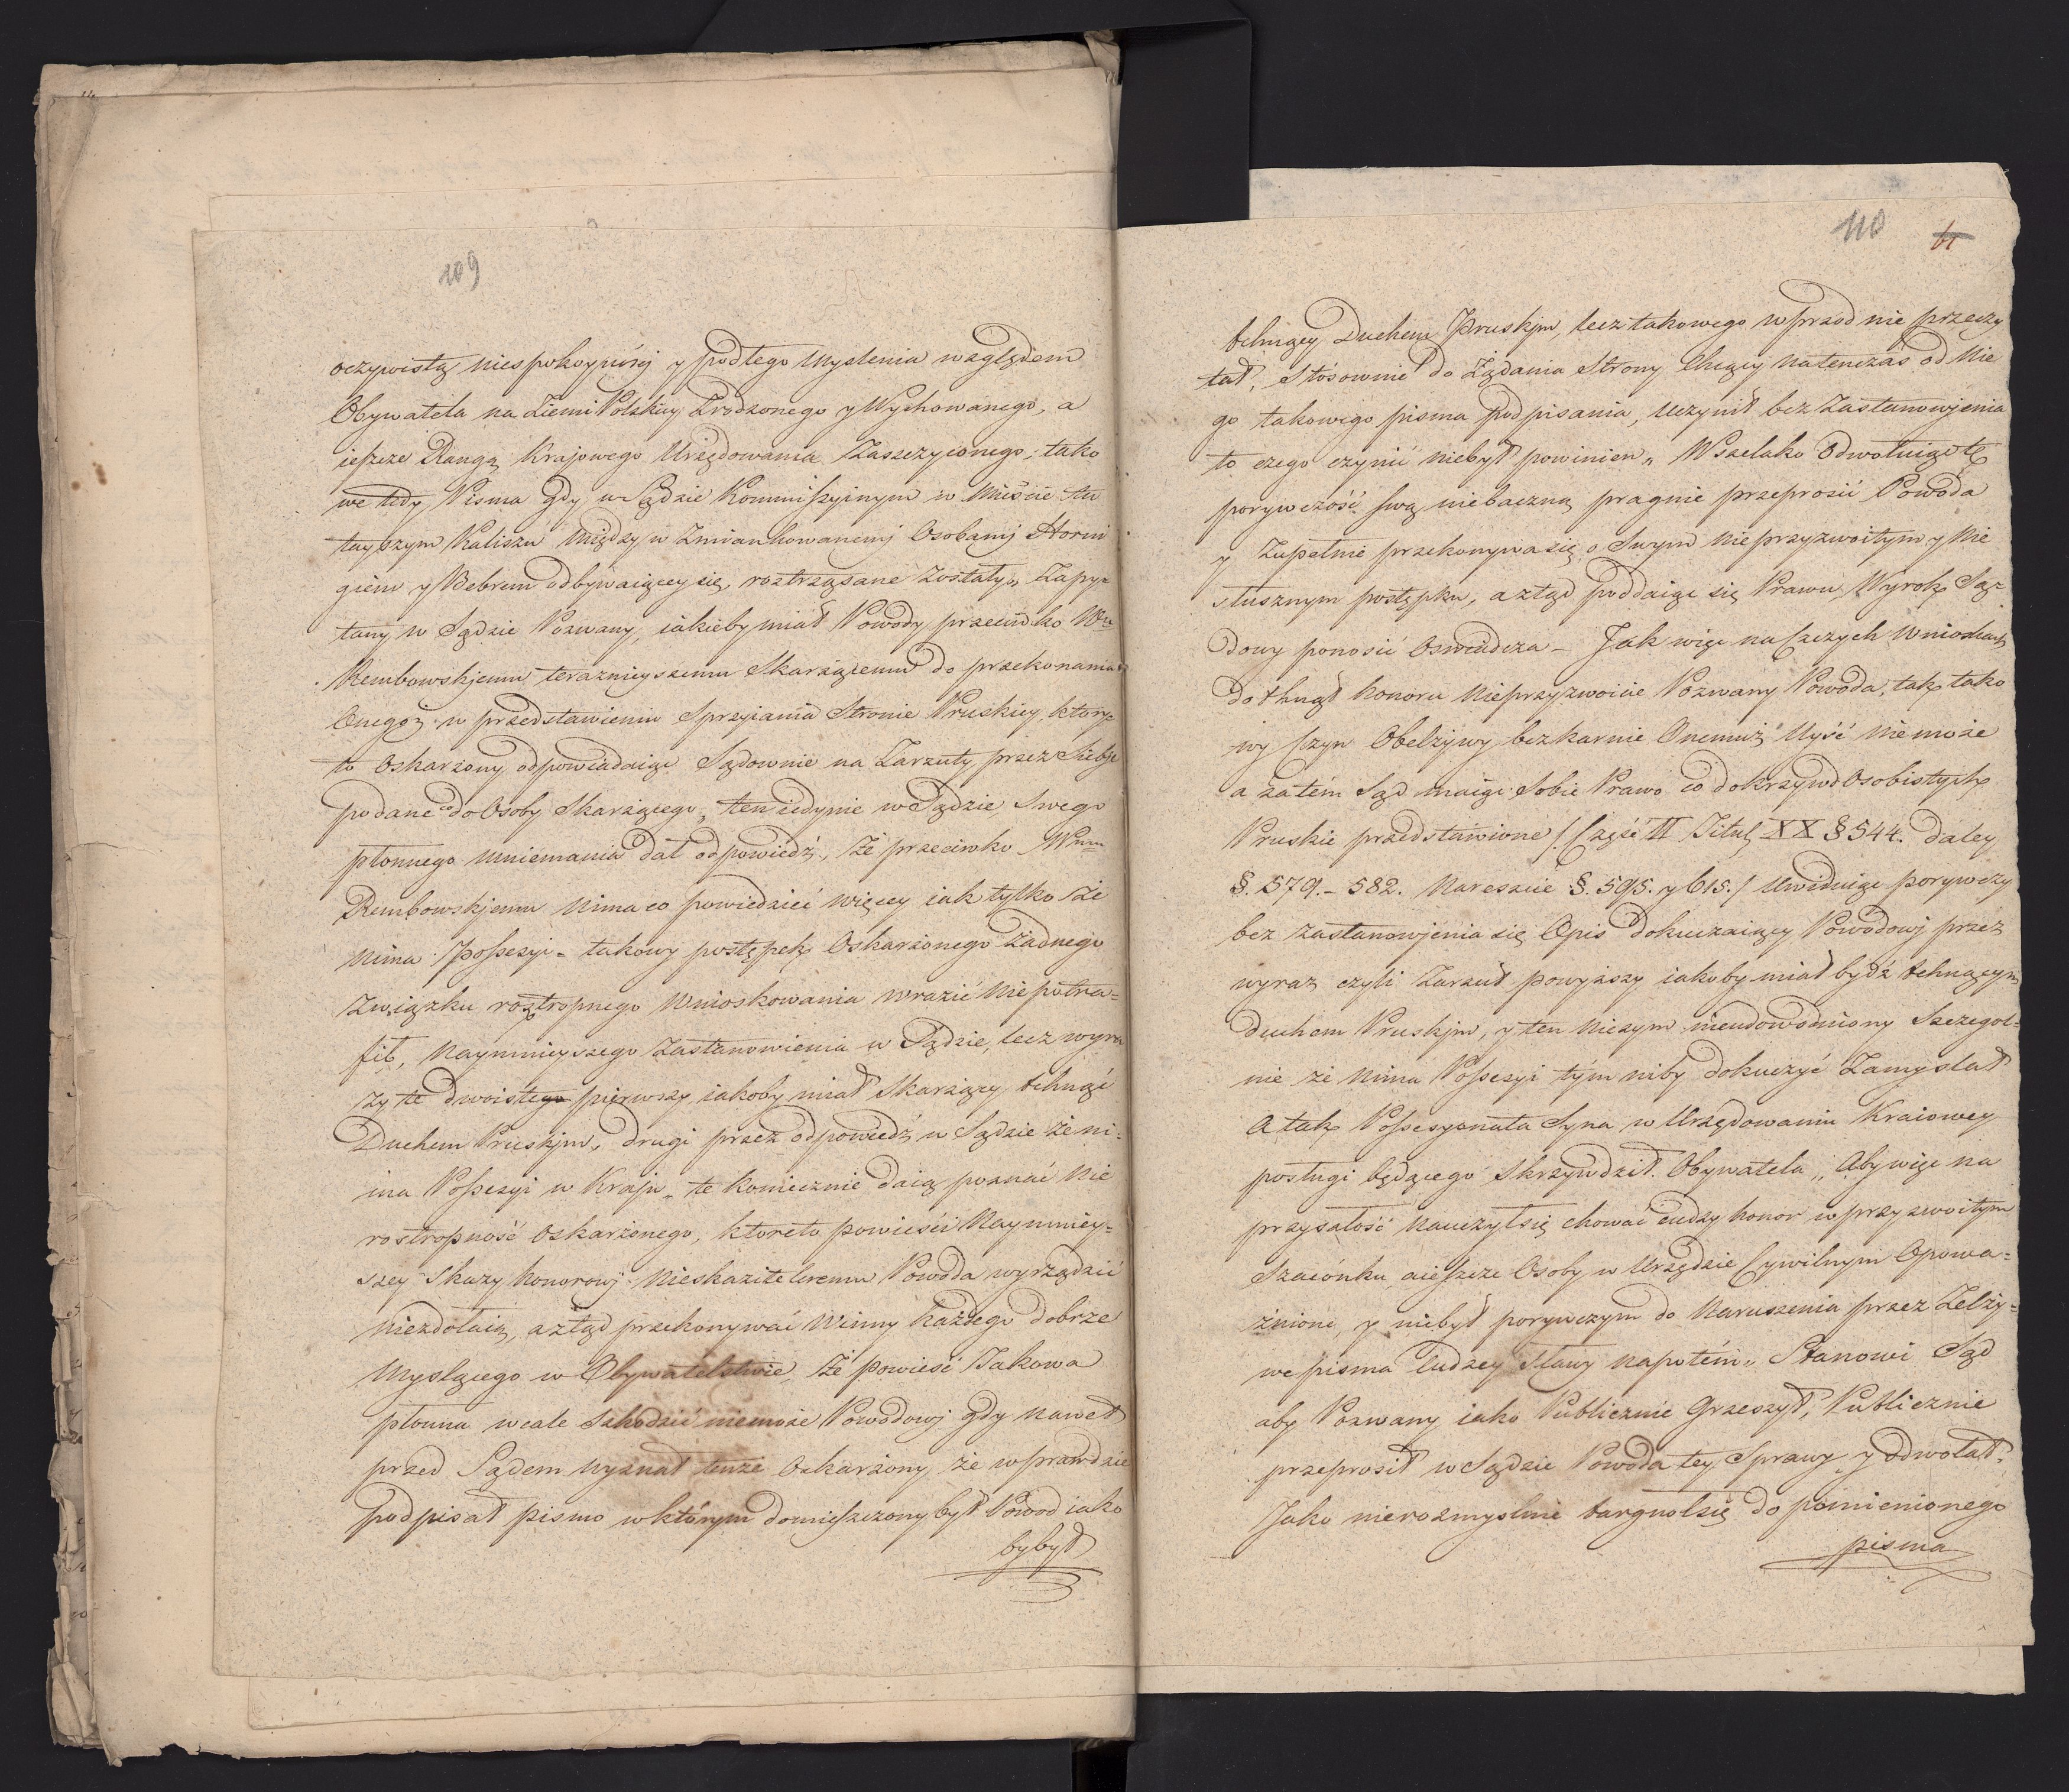 109
oczywistą niespokoynéy y podłego myslenia względem
Obywatela na Ziemi Polskiey Zrodzonego y Wychowanego, a
ieszcze Rangą Krajowego Urzędowania Zaszczyconego; tako
we tedy Pisma gdy w Sądzie Kommissyinym w Mieście tu
teyszym Kaliszu między w Zmiankowanemi Osobamj Horni
giem y Bebrem odbywaiącey się, roztrząsane zostały, Zapy=
tany w Sądzie Pozwany, iakieby miał Powody przeciwko Wu
Rembowskjemu teraznieyszemu Skarżącemu do przekonania
Onegoż w przedstawieniu Sprzyiania Stronie Pruskiey, ktory=
to Oskarżony odpowiadaiąc Sądownie na Zarzuty przez Siebie
podane co do Osoby Skarżącego, ten iedynie w Sądzie Swego
płonnego mniemania dał odpowiedź, że przeciwko Wmu
Rembowskjemu nima co powiedzieć więcey iak tylko że
nima Possesyi - takowy postępek Oskarżonego żadnego
Związku roztropnego wnioskowania wrazić niepotra=
fił, naymnieyszego zastanowienia w Sądzie, lecz wyra
zy te dwoiste pierwszy iakoby miał Skarżący tchnąć
Duchem Pruskjm, drugi przez odpowiedź w Sądzie że ni=
ma Possesyi w Kraju, te koniecznie daią poznać nie
rostropność oskarżonego, ktoreto powieści naymniey=
szey Skazy honorowj nieskazitelnemu Powoda wyrządzić
niezdołaią, a ztąd przekonywać winny każdego dobrze
myslącego w Obywatelstwie, że powieść Takowa
płonna wcale szkodzić niemoże Powodowj gdy nawet
przed Sądem wyznał tenże Oskarżony że wprawdzie
podpisał pismo w którym domieszczony był Powod iako
bybył
110 61
tchnący Duchem Pruskjm, lecz takowego wprzod nie przeczy
tał, Stósownie do Żądania Strony Chcącey natenczas od Nie
go takowego pisma podpisania, uczynił bez Zastanowjenia
to czego czynić niebył powinien, Wszelako Odwołuiąc tę
porywczość swą niebaczną pragnie przeprosić Powoda
y Zupełnie przekonywa się o Swym nieprzyzwoitym y nie
słusznym postępku, a ztąd poddaiąc się Prawu, Wyrok Są=
dowy ponosić Oswiadcza - Jak więc na Sczych wnioskach
dotknął honoru nieprzyzwoicie Pozwany Powoda, tak tako
wy Czyn Obelżywy bezkarnie Onemuż Uyść niemoże
a zatém Sąd maiąc Sobie Prawo co do krzywd Osobistych
Pruskie przedstawione /: Część II Tituł XX § 544. daley
§. 579. - 582. nareszcie §. 595. y 615. / Uwidniąc porywczy
bez zastanowjenia się Opis dokuczaiący Powodowj przez
wyraz czyli Zarzut powyższy iakoby miał bydź tchnącym
duchem Pruskjm, y ten niczym nieudowodniony Szczegol=
nie że nima Possesyi tym niby dokuczyć Zamyslał
A tak Possesyonata Syna w Urzędowaniu Kraiowey
posługi będącego Skrzywdził Obywatela, Aby więc na
przyszłość nauczył się chować cudzy honor w przyzwoitym
Szacónku, aieszcze Osoby w Urzędzie Cywilnym Opowa=
żnione, y niebył porywczym do naruszenia przez Zelży=
we pisma Cudzey Sławy napotém, Stanowi Sąd
aby Pozwany iako Publicznie Grzeszył, Publicznie
przeprosił w Sądzie Powoda tey Sprawy y odwołał,
Jako nierozmyslnie targnołsię do pomienionego
pisma